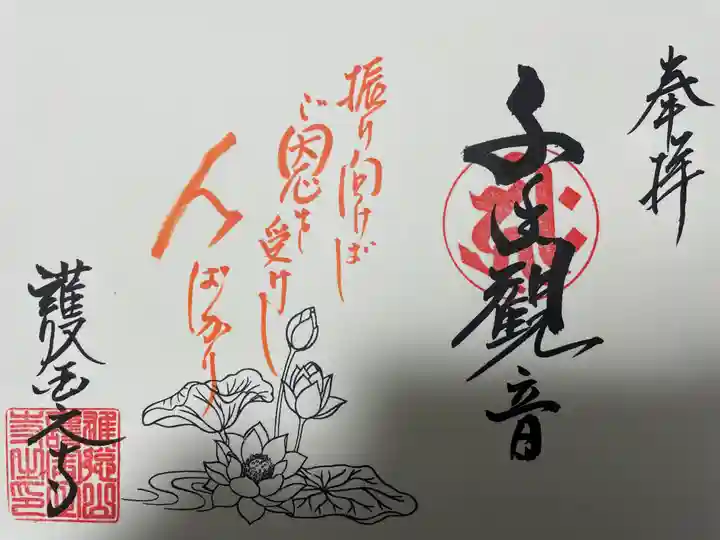 奉拝
千手觀音
振り向けば
ご恩を
受けし
人ばかり
護国之寺